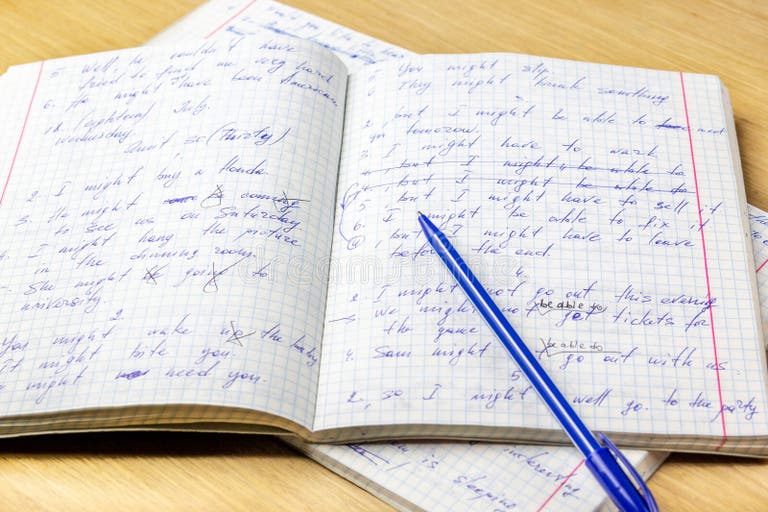 5. Well, he couldn't have
tried to find me very hard
6. He might have been American
18 (eighteen) July.
Wednesday
Unit, 30 (Thirty)
2. I might buy a Honda.
3. He might be coming
to see us on Saturday
4. I might hang the picture
in the dinning room.
She might be going to
university.
2
You might wake up the
It might bite you.
might need you.
5 You might slip
6 They might break something
2, but I might be able to meet
you tomorrow.
3. I might have to work
4, but I might be able to
4. but I might be able to
5. but I might have to sell it
6. I might be able to fix it
, but I might have to leave
before the end.
4.
2. I might not go out this evening
3. We might not be able to get tickets for
the game
4. Sam might be able to go out with us.
5
2, so I might well go. to the party
interesting
is
sleeping
dreamstime